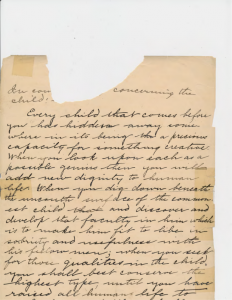 In con concerning the
child:
Every child that comes before
you has hidden away some
where in its being this precious
capacity for something creative
When you look upon each as a
possible genius then you will
add new dignity to human
life. When you dig down beneath
the uncouth surface of the common
est child and discover and
develop that faculty in him which
is to make him fit to live in
society and usefulness with
his fellow men, when you seek
for those qualities in the child
you shall best conserve the
highest type until you have
raised all human life to